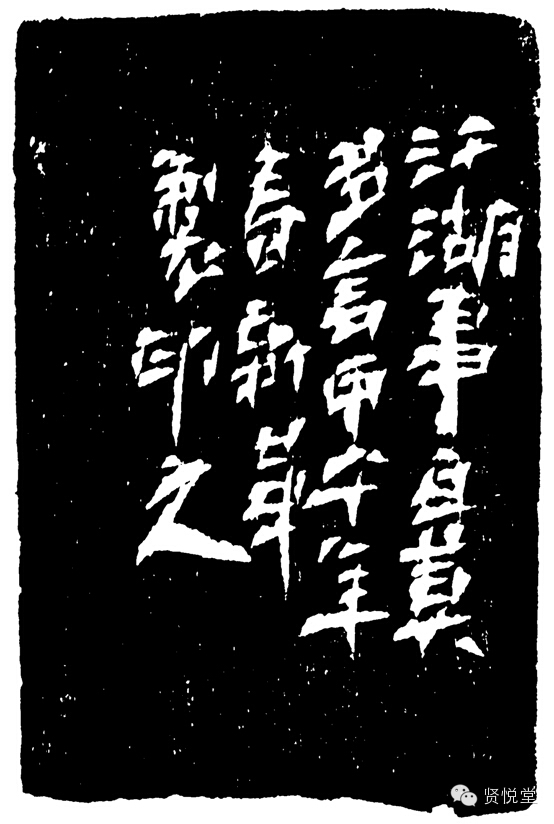 江湖事且莫
多言甲午年
春新
製印之
贤悦堂